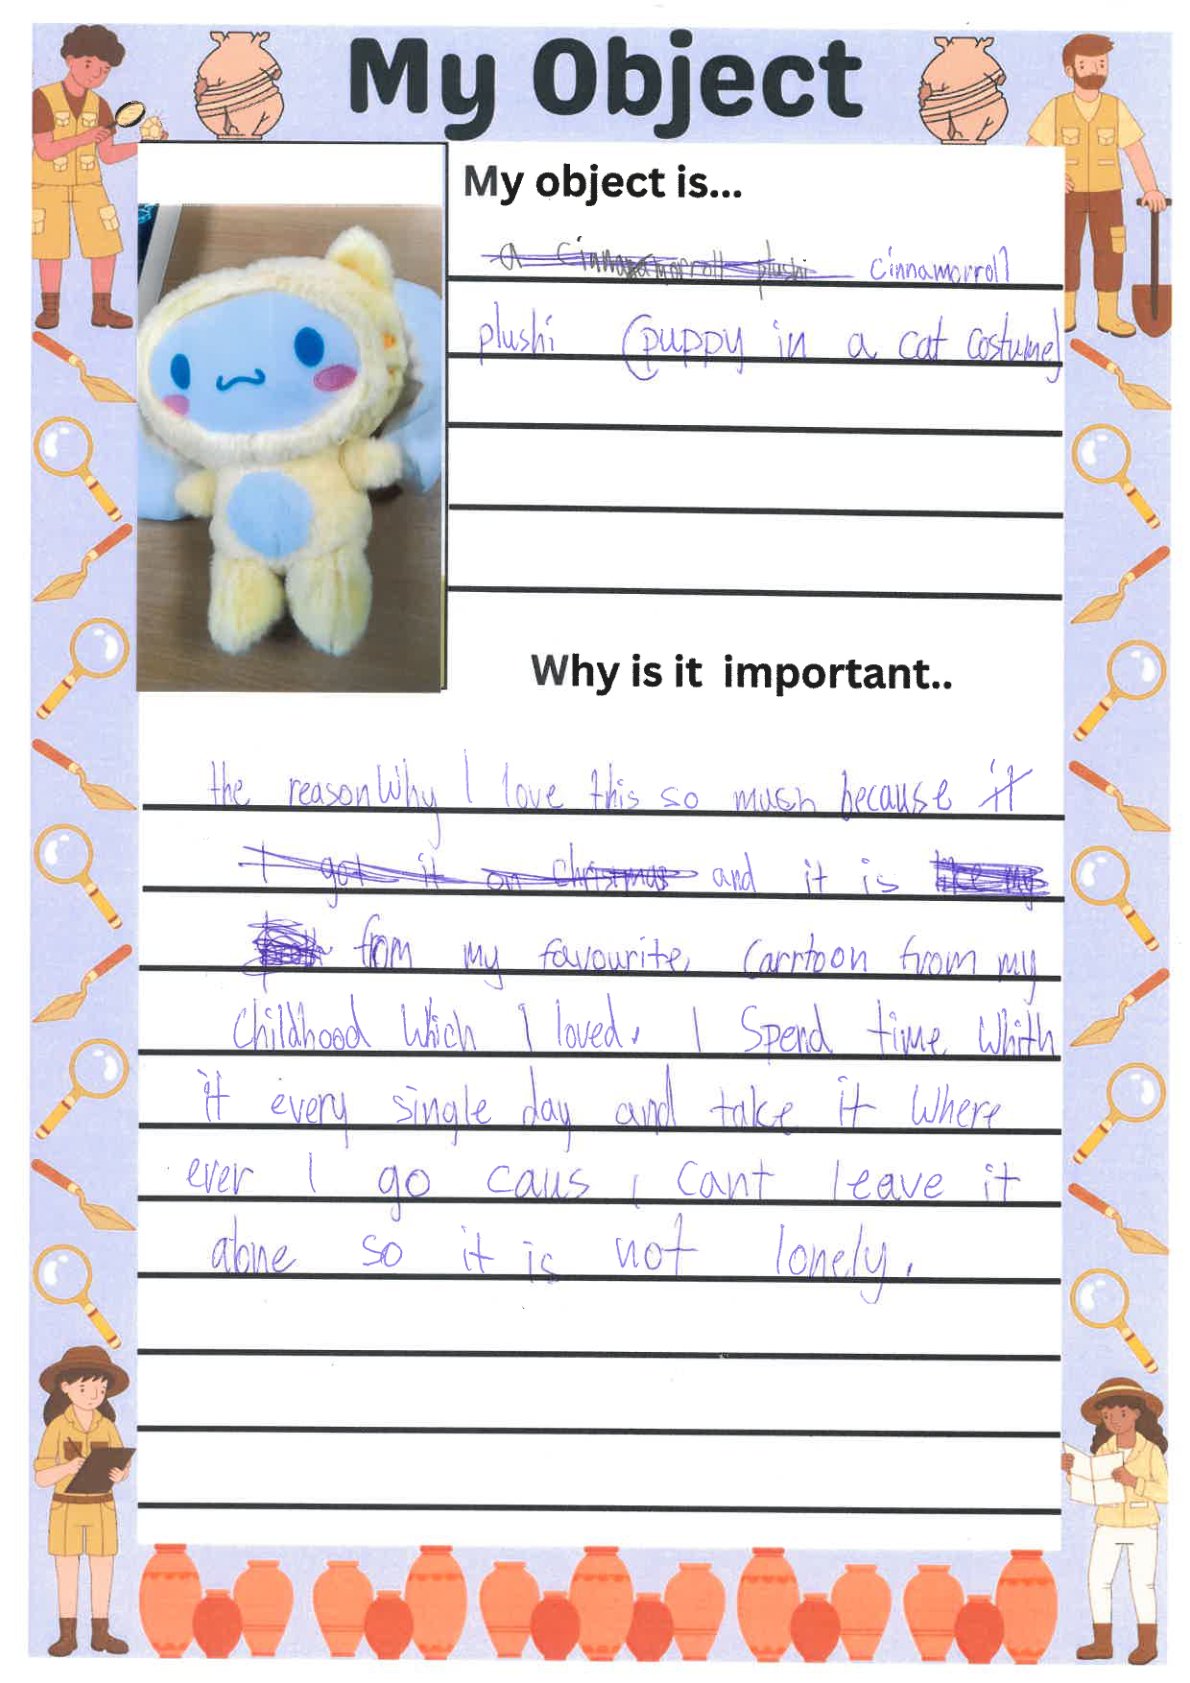 My Object
My object is...
a cinnamorroll plushi cinnamorroll
plushi (puppy in a cat costume)
Why is it important..
the reason Why I love this so much because it
I got it on christmas and it is like my
from my favourite, Carrtoon from my
Childhood Which I loved. I Spend time Whith
it every single day and take it Where
ever I go caus i cant leave it
alone so it is not lonely.